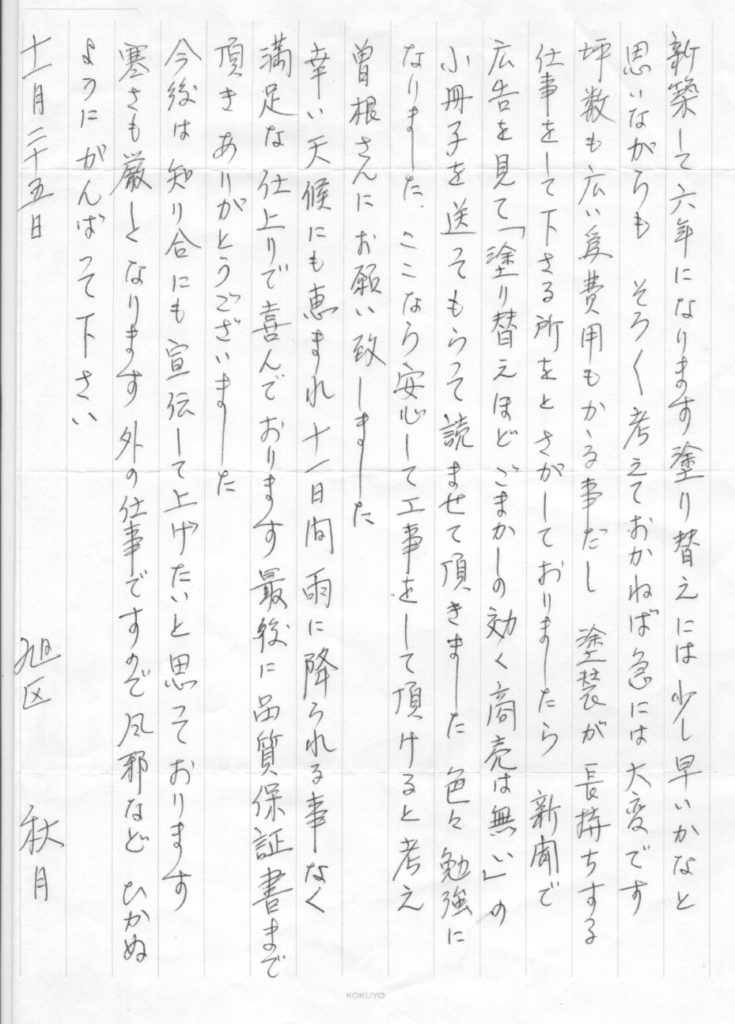 新築して六年になります塗り替えには少し早いかなと
思いながらも そろ〱考えておかねば急には大変です
坪数も広い為費用もかゝる事だし 塗装が長持ちする
仕事をして下さる所をとさがしておりましたら 新聞で
広告を見て「塗り替えほどごまかしの効く商売は無い」の
小冊子を送ってもらって読ませて頂きました 色々勉強に
なりました、ここなら安心して工事をして頂けると考え
曽根さんにお願い致しました
幸い天候にも恵まれ十一日間雨に降られる事なく
満足な仕上りで喜んでおります 最後に品質保証書まで
頂きありがとうございました
今後は知り合にも宣伝して上げたいと思っております
寒さも厳しくなります 外の仕事ですので風邪など ひかぬ
ようにがんばって下さい
十一月二十五日 旭区 秋月
KOKUYO